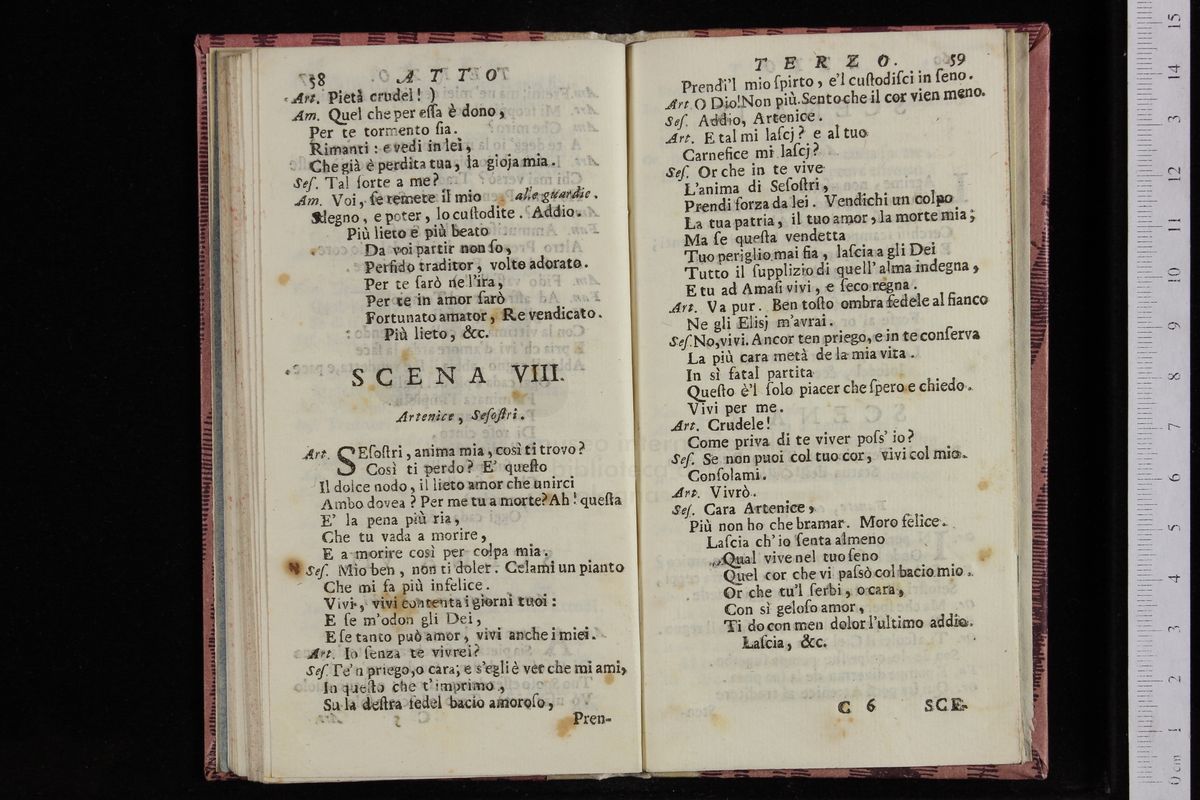 58 ATTO
Art. Pietà crudel! )
Am. Quel che per eſſa è dono,
Per te tormento ſia.
Rimanti: e vedi in lei,
Che già è perdita tua, la gioja mia.
Seſ. Tal ſorte a me?
Am. Voi, ſe remete il mio alle guardie.
Sdegno, e poter, lo cuſtodite. Addio.
Più lieto e più beato
Da voi partir non ſo,
Perfido traditor, volto adorato.
Per te ſarò ne l'ira,
Per te in amor ſarò
Fortunato amator, Re vendicato.
Più lieto, &c.
SCENA VIII.
Artenice, Seſoſtri.
Art. SEſoſtri, anima mia, così ti trovo?
Così ti perdo? E' queſto
Il dolce nodo, il lieto amor che unirci
Ambo dovea? Per me tu a morte? Ah! queſta
E' la pena più ria,
Che tu vada a morire,
E a morire così per colpa mia.
Seſ. Mio ben, non ti doler. Celami un pianto
Che mi fa più infelice.
Vivi, vivi contenta i giorni tuoi:
E ſe m'odon gli Dei,
E ſe tanto può amor, vivi anche i miei.
Art. Io ſenza te vivrei?
Seſ. Te'n priego, o cara; e s'egli è ver che mi ami,
In queſto che t'imprimo,
Su la deſtra fedel bacio amoroſo,
Pren-
TERZO. 59
Prendi'l mio ſpirto, e'l cuſtodiſci in ſeno.
Art O Dio! Non più. Sento che il cor vien meno.
Seſ. Addio, Artenice.
Art. E tal mi laſcj? e al tuo
Carnefice mi laſcj?
Seſ. Or che in te vive
L'anima di Seſoſtri,
Prendi forza da lei. Vendichi un colpo
La tua patria, il tuo amor, la morte mia;
Ma ſe queſta vendetta
Tuo periglio mai fia, laſcia a gli Dei
Tutto il ſupplizio di quell' alma indegna,
E tu ad Amaſi vivi, e ſeco regna.
Art. Va pur. Ben toſto ombra fedele al fianco
Ne gli Elisj m'avrai.
Seſ. No, vivi. Ancor ten priego, e in te conſerva
La più cara metà de la mia vita.
In sì fatal partita
Queſto è'l ſolo piacer che ſpero e chiedo.
Vivi per me.
Art. Crudele!
Come priva di te viver poſs' io?
Seſ. Se non puoi col tuo cor, vivi col mio.
Conſolami.
Art. Vivrò.
Seſ. Cara Artenice,
Più non ho che bramar. Moro felice.
Laſcia ch' io ſenta almeno
Qual vive nel tuo ſeno
Quel cor che vi paſsò col bacio mio.
Or che tu'l ſerbi, o cara,
Con sì geloſo amor,
Ti do con men dolor l'ultimo addio.
Laſcia, &c.
C 6 SCE-